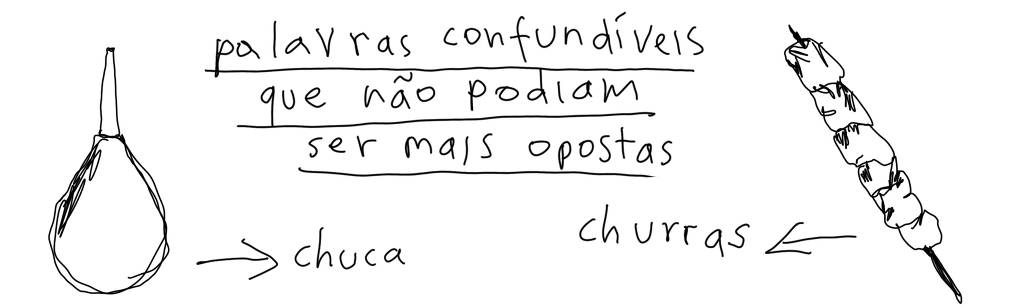 palavras confundíveis
que não podiam
ser mais opostas
chuca
churras